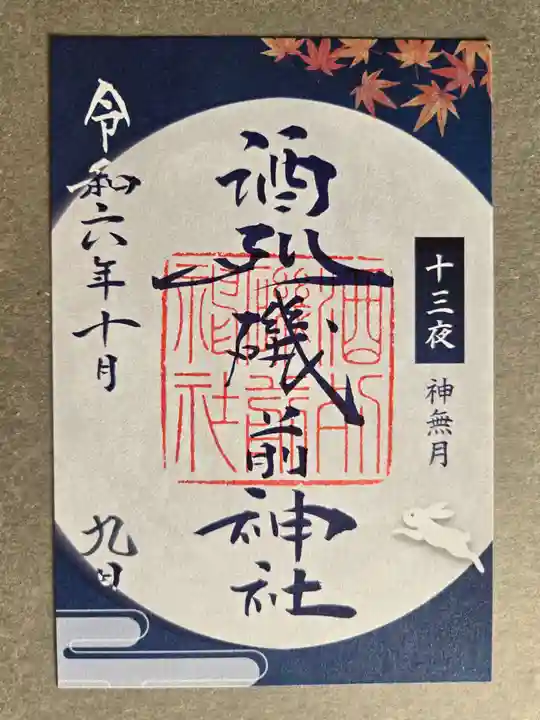 十三夜
神無月
酒列磯前神社
酒列磯前神社
令和六年十月
九日